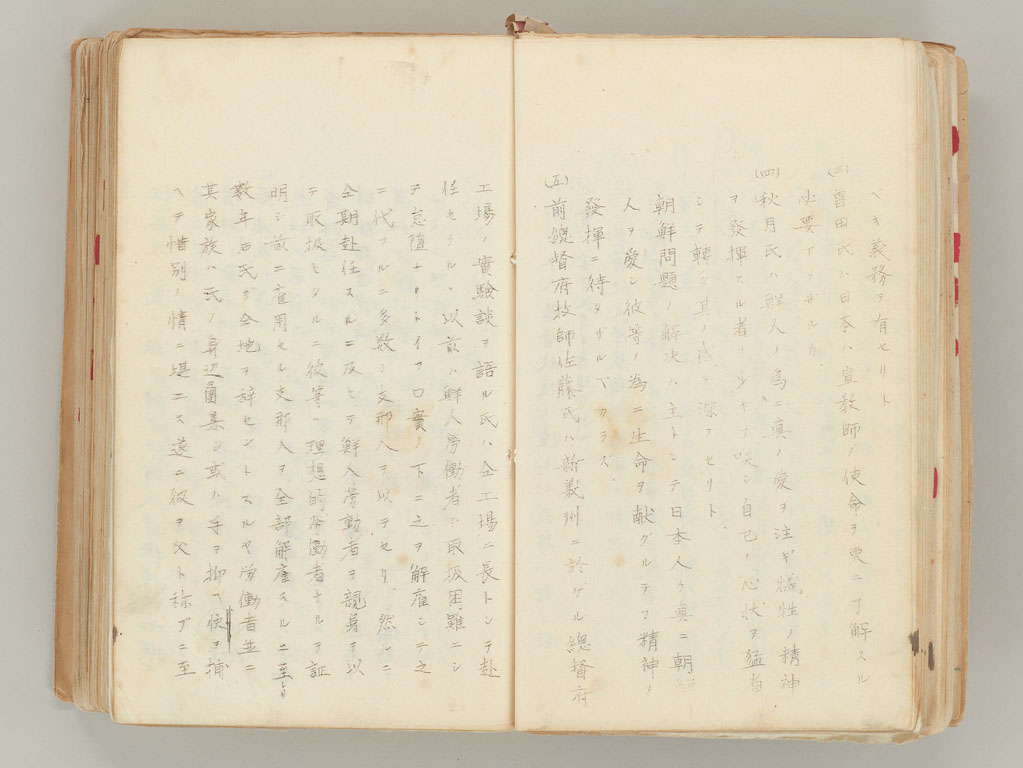 ベキ義務ヲ有セリト
(三)曽田氏ハ日本ハ宣教師ノ使命ヲ更ニ了解スル
必要アラザルカ
(四)秋月氏ハ鮮人ノ為ニ真ノ愛ヲ注ギ犠牲ノ精神
ヲ発揮スル者ノ少キヲ嘆シ自己ノ心状ヲ猛省
シテ轉タ其ノ感ヲ深フセリト
朝鮮問題ノ解決ハ主トシテ日本人ガ真ニ朝鮮
人ヲ愛シ彼等ノ為ニ生命ヲ献グルテフ精神ノ
發揮ニ待タザルベカラズ
(五)前總督府技師佐藤氏ハ新義州ニ於ケル總督府
工場ノ實驗談ヲ語ル氏ハ仝工場ニ長トシテ赴
任セラルヽ以前ハ鮮人労働者ハ取扱困難ニシ
テ怠惰ナリトイフ口實ノ下ニ之ヲ解雇シテ之
ニ代フルニ多数ノ支那人ヲ以テセリ然ルニ
仝期赴任スルニ及ビテ鮮人労働者ヲ親身ヲ以
テ取扱ヒタルニ彼等ハ理想的労働者ナルヲ証
明シ前ニ雇用セシ支那人ヲ全部解雇スルニ至
数年后氏ガ仝地ヲ辞セントスルヤ労働者並ニ
其家族ハ氏ノ身辺ヲ圍暴シ或ハ手ヲ押ヘ快ヲ捕
ヘテ惜別ノ情ニ堪エズ遂ニ彼ヲ父ト称ブニ至